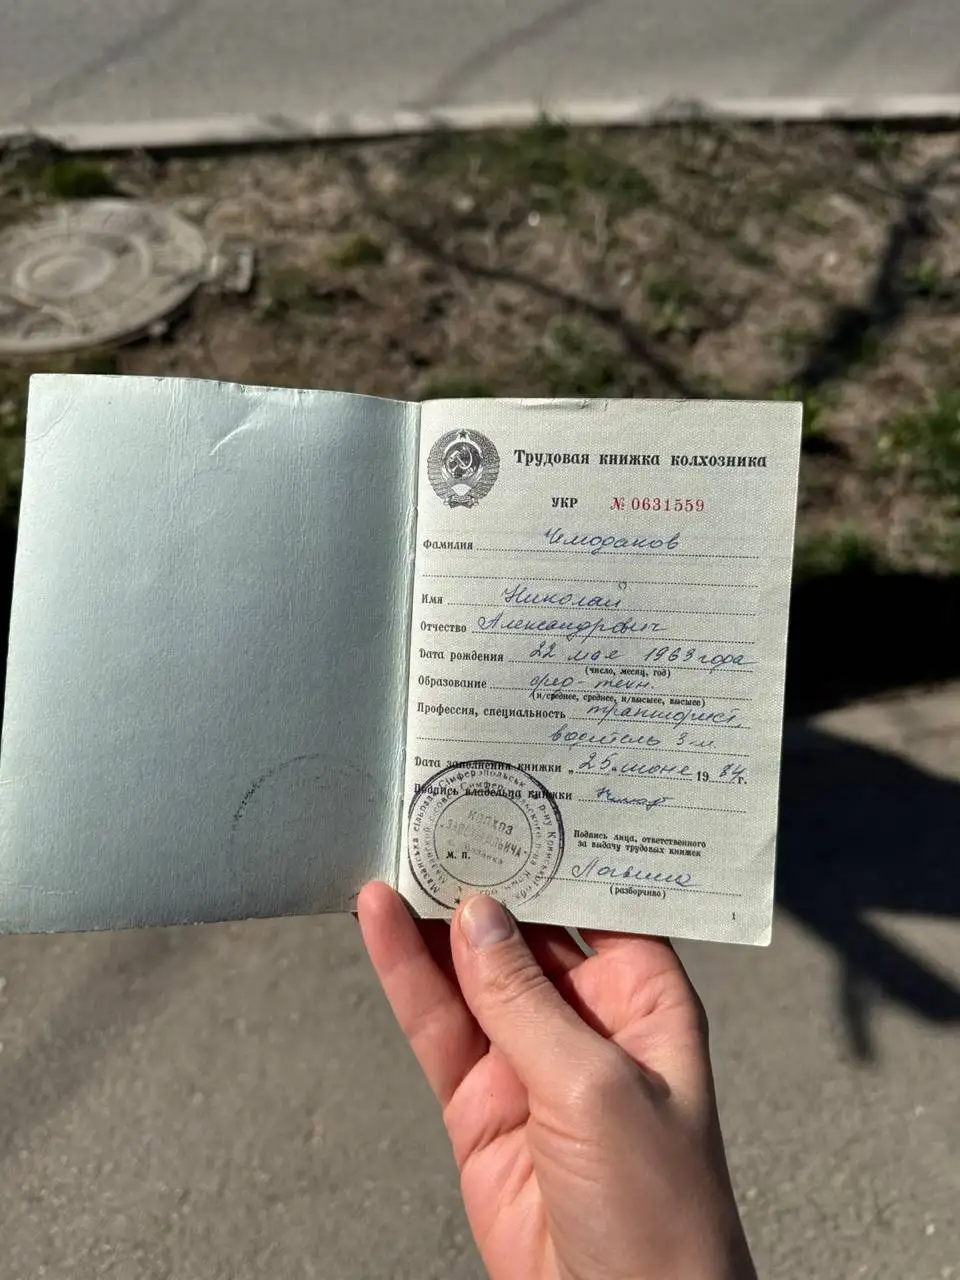 Трудовая книжка колхозника
УКР № 0631559
Фамилия Чемоданов
Имя Николай
Отчество Александрович
Дата рождения 22 мая 1963 года
(число, месяц, год)
Образование средне-техн.
(н/среднее, среднее, н/высшее, высшее)
Профессия, специальность тракторист,
водитель 3 кл.
Дата заполнения книжки „ 25 июня 1984 г.
Подпись владельца книжки
КОЛХОЗ
Подпись лица, ответственного
за выдачу трудовых книжек
М. П.
(разборчиво)
1